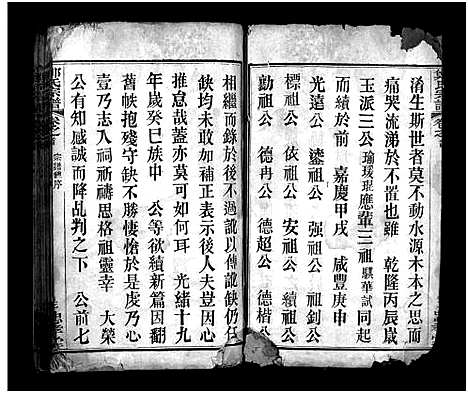 淆生斯世者莫不動水源木本之思而
痛哭流涕於不置也雖 乾隆丙辰歲
玉派三公瑜瑗琨應葷三祖騏華試同
而績於前 嘉慶甲戌 咸豐庚申
公光遠公 鎏祖公 强祖公 祖釗公
標祖公 依祖公 安祖公 續祖公
動祖公 德冉公 德超公 德楷公
相繼而錄於後不過訛以傳訛缺仍任
缺均未敢加補正表示後人夫豈因心
推怠哉蓋亦莫可如何耳 光緒十九
年歲癸巳族中 公等欲續新篇因翻
舊帙抱殘守缺不勝悽愴於是虔乃心
壹乃志入耐禱思格祖靈幸 大榮
公有知感誠而降乩判之下 公前七
氏宗譜 卷之首 宗譜 序